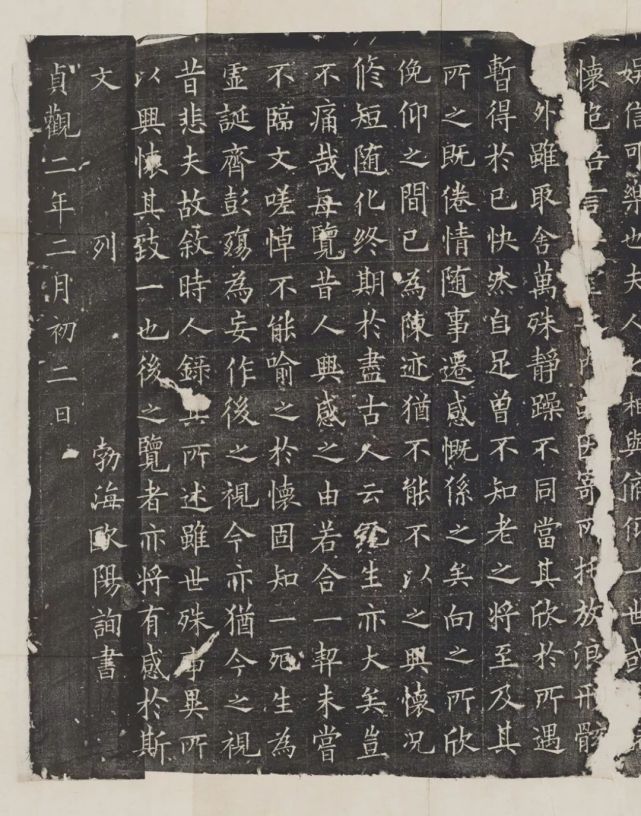 娛信可樂也夫人之相與俯仰一世或
懷抱言因寄所托放浪形骸
外雖取舍萬殊靜躁不同當其欣於所遇
暫得於己快然自足曾不知老之將至及其
所之既倦情随事遷感慨係之矣向之所欣
俛仰之間已為陳迹猶不能不以之興懷況
脩短随化終期於盡古人云死生亦大矣豈
不痛哉每覽昔人興感之由若合一契未嘗
不臨文嗟悼不能喻之於懷固知一死生為
虛誕齊彭殤為妄作後之視今亦猶今之視
昔悲夫故敘時人錄其所述雖世殊事異所
以興懷其致一也後之覽者亦將有感於斯
文 列 勃海歐陽詢書
貞觀二年二月初二日